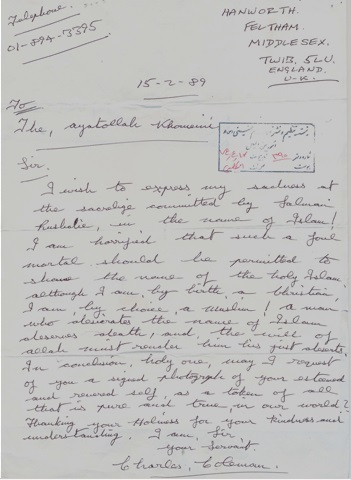 Telephone.
01-894-3395
HANWORTH.
FELTHAM.
MIDDLESEX.
TW13. 5LU.
ENGLAND.
U.K.
15-2-89
To
The, ayatollah Khomeini
Sir.
I wish to express my sadness at
the sacrelige committed by Salman
Rushdie, in the name of Islam!
I am horrified that such a foul
mortal should be permitted to
shame the name of the holy Islam
although I am, by birth a Christian,
I am, by choice, a Muslim! a man
who the name of Islam
deserves death, and the will of
allah must render him his just deserts.
In conclusion, holy one, may I request
of you a signed photograph of your esteemed
and revered self, as a token of all
that is pure and true, in our world?
Thanking your Holiness for your kindness and
understanding. I am, Sir
your Servant.
Charles, Coleman.